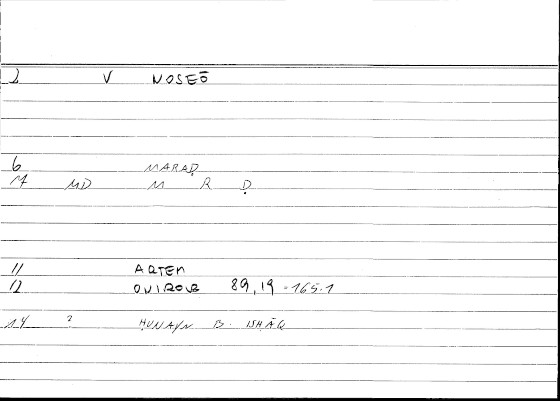 2 V NOSEŌ
6 MARAḌ
17 MD M R Ḍ
11 ARTEM
12 ONIROUR 89,19-165.1
14 ? ḤUNAYN B. ISḤĀQ